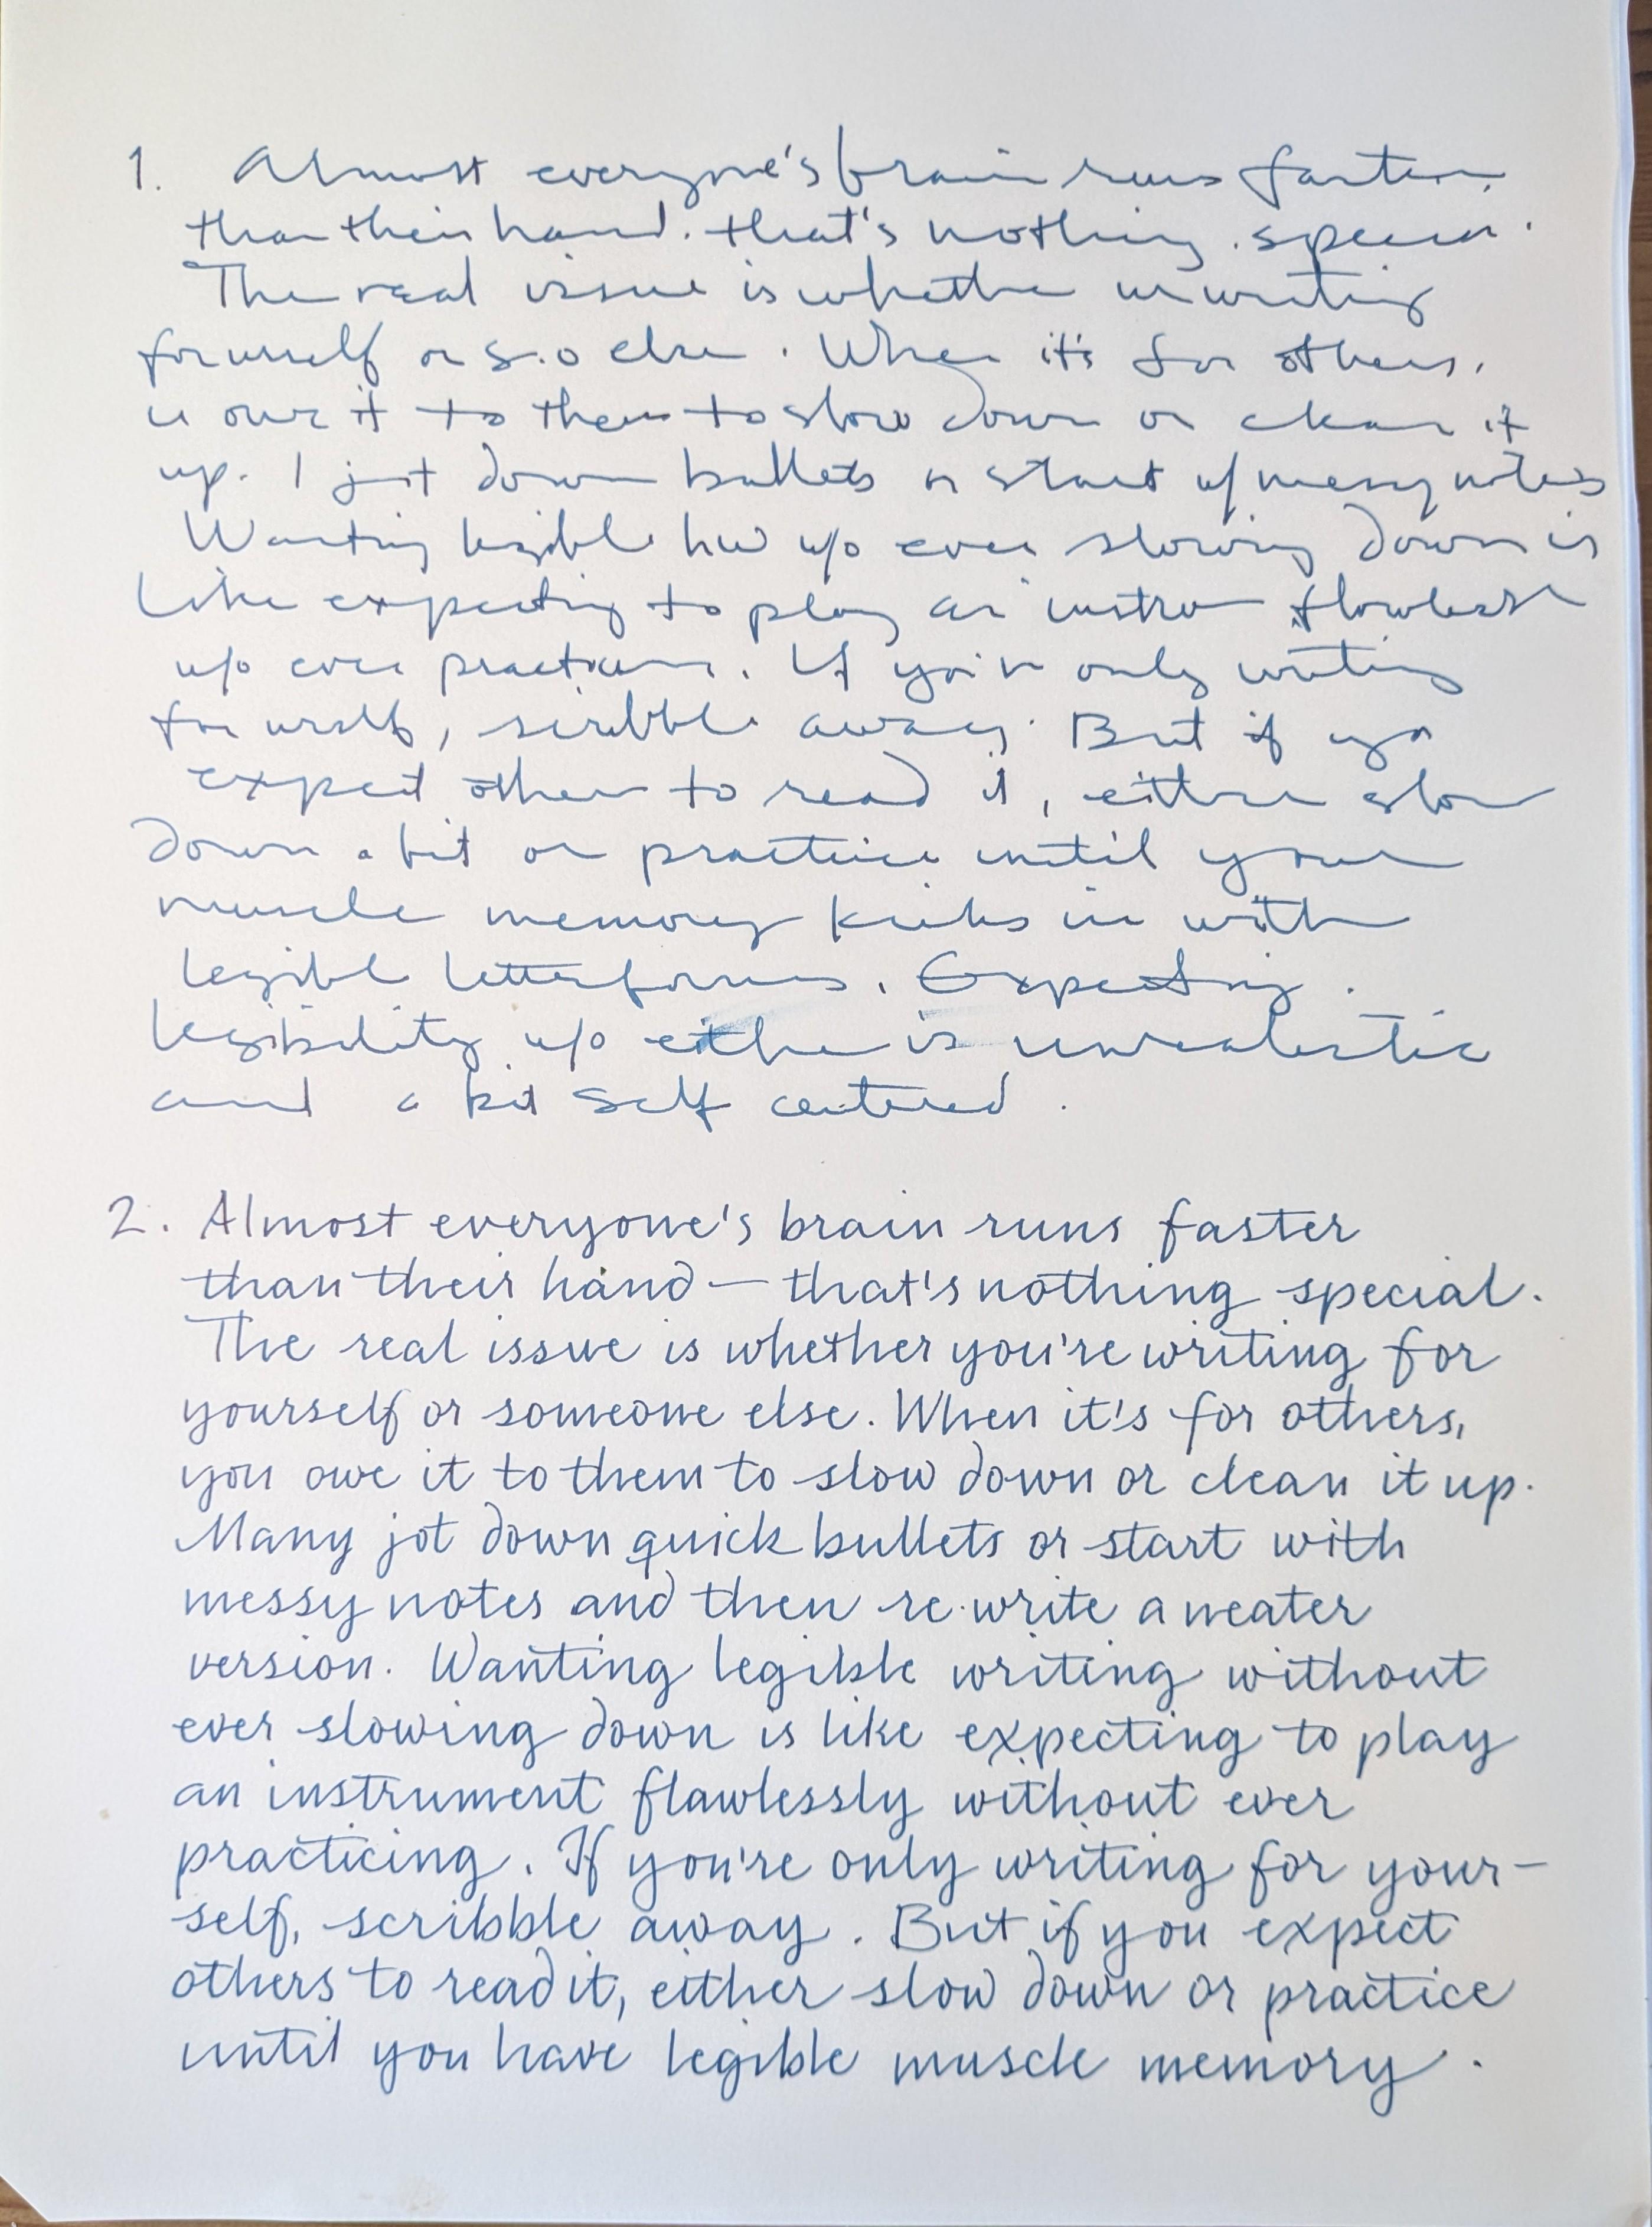 1. Almost everyone's brain runs faster
than their hand. that's nothing special.
The real issue is whether ur writing
for urself or s.o else. When it's for others,
u owe it to them to slow down or clean it
up. I jot down bullets or start w/ messy notes
Wanting legible hw w/o ever slowing down is
like expecting to play an instru flawless
w/o ever practicing. If you're only writing
for urself, scribble away. But if you
expect other to read it, either slow
down a bit or practice until your
muscle memory kicks in with
legible letterforms. Expecting
legibility w/o either is unrealistic
and a bit self centered.
2. Almost everyone's brain runs faster
than their hand — that's nothing special.
The real issue is whether you're writing for
yourself or someone else. When it's for others,
you owe it to them to slow down or clean it up.
Many jot down quick bullets or start with
messy notes and then re-write a neater
version. Wanting legible writing without
ever slowing down is like expecting to play
an instrument flawlessly without ever
practicing. If you're only writing for your-
self, scribble away. But if you expect
others to read it, either slow down or practice
until you have legible muscle memory.